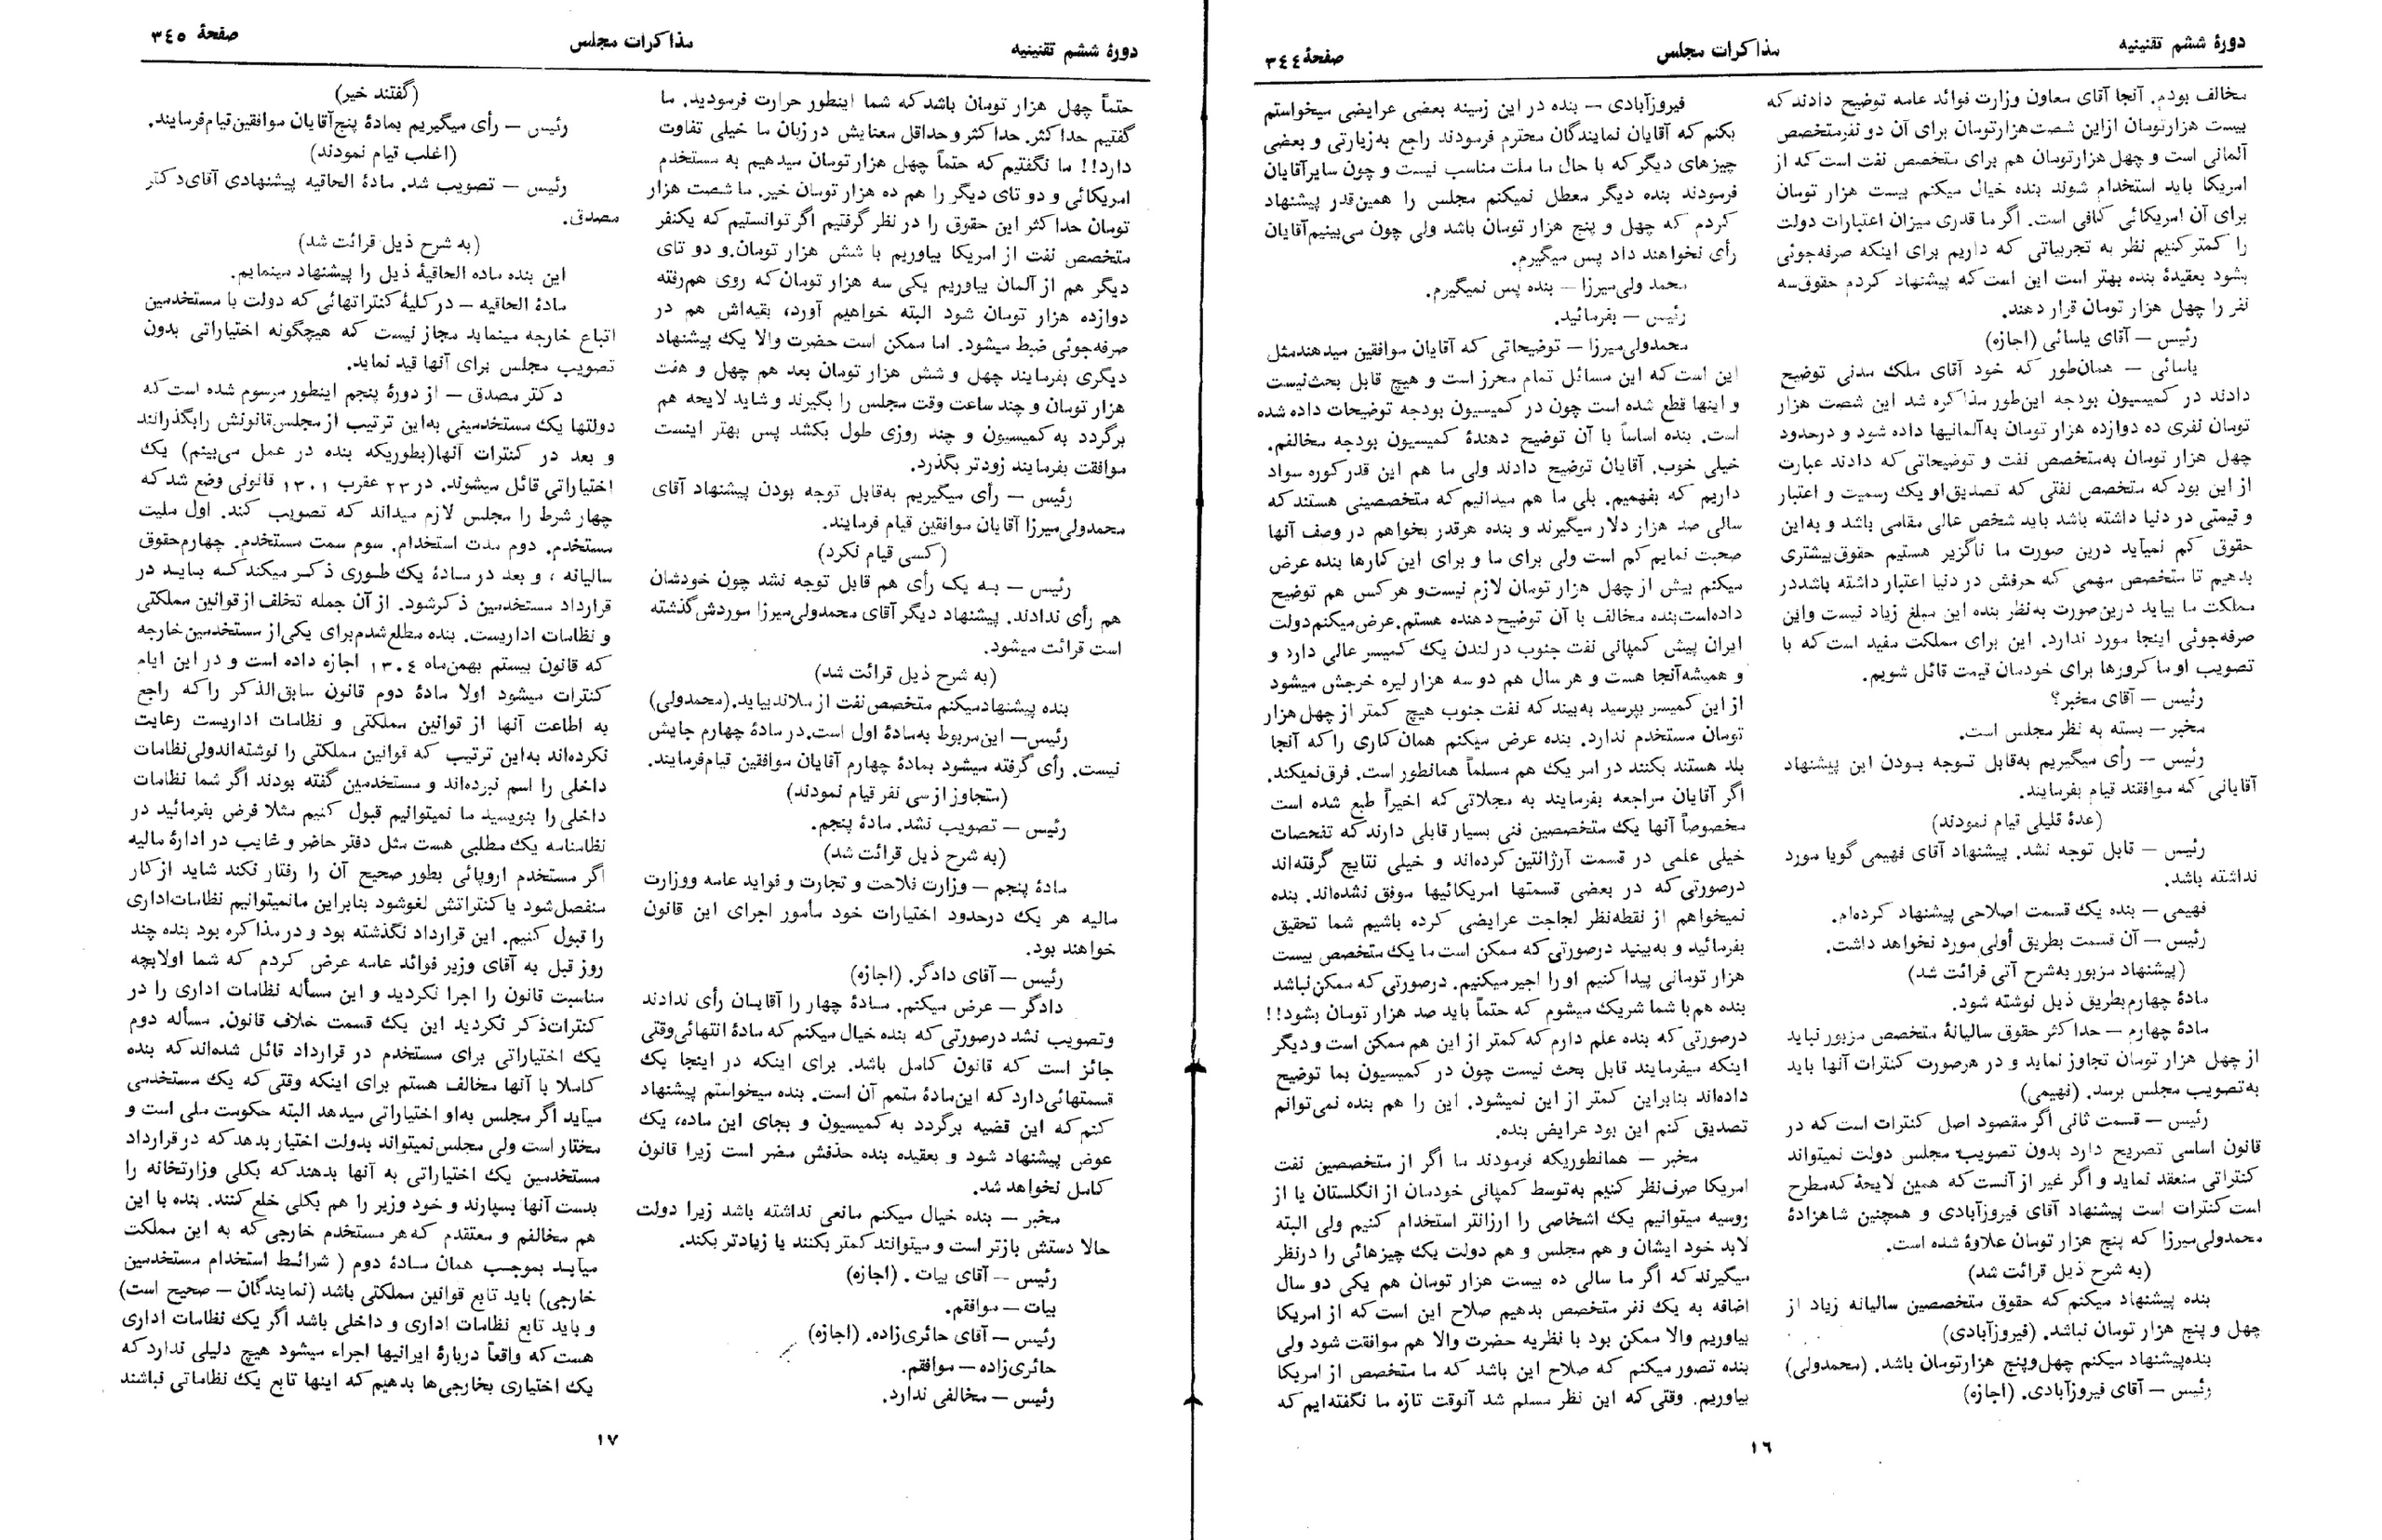 دورهٔ ششم تقنینیه
مذاکرات مجلس
صفحهٔ ۳٤٤
مخالف بودم. آنجا آقای معاون وزارت فوائد عامه توضیح دادند که
بیست هزارتومان ازاین شصت‌هزارتومان برای آن دو نفرمتخصص
آلمانی است و چهل هزارتومان هم برای متخصص نفت است که از
امریکا باید استخدام شوند بنده خیال میکنم بیست هزار تومان
برای آن امریکائی کافی است. اگر ما قدری میزان اعتبارات دولت
را کمتر کنیم نظر به تجربیاتی که داریم برای اینکه صرفه‌جوئی
بشود بعقیدهٔ بنده بهتر است این است که پیشنهاد کردم حقوق سه
نفر را چهل هزار تومان قرار دهند.
رئیس – آقای یاسائی (اجازه)
یاسائی – همان‌طور که خود آقای ملک مدنی توضیح
دادند در کمیسیون بودجه این‌طور مذاکره شد این شصت هزار
تومان نفری ده دوازده هزار تومان به‌آلمانیها داده شود و درحدود
چهل هزار تومان به‌متخصص نفت و توضیحاتی که دادند عبارت
از این بود که متخصص نفتی که تصدیق او یک رسمیت و اعتبار
و قیمتی در دنیا داشته باشد باید شخص عالی مقامی باشد و به‌این
حقوق کم نمیآید درین صورت ما ناگزیر هستیم حقوق بیشتری
بدهیم تا متخصص مهمی که حرفش در دنیا اعتبار داشته باشددر
مملکت ما بیاید درین‌صورت به‌نظر بنده این مبلغ زیاد نیست واین
صرفه‌جوئی اینجا مورد ندارد. این برای مملکت مفید است که با
تصویب او ما کرورها برای خودمان قیمت قائل شویم.
رئیس – آقای مخبر؟
مخبر – بسته به نظر مجلس است.
رئیس – رأی میگیریم به‌قابل توجه بودن این پیشنهاد
آقایانی که موافقند قیام بفرمایند.
(عدهٔ قلیلی قیام نمودند)
رئیس – قابل توجه نشد. پیشنهاد آقای فهیمی گویا مورد
نداشته باشد.
فهیمی – بنده یک قسمت اصلاحی پیشنهاد کرده‌ام.
رئیس – آن قسمت بطریق أولی مورد نخواهد داشت.
(پیشنهاد مزبور به‌شرح آتی قرائت شد)
مادهٔ چهارم بطریق ذیل نوشته شود.
مادهٔ چهارم – حداکثر حقوق سالیانهٔ متخصص مزبور نباید
از چهل هزار تومان تجاوز نماید و در هرصورت کنترات آنها باید
به‌تصویب مجلس برسد. (فهیمی)
رئیس – قسمت ثانی اگر مقصود اصل کنترات است که در
قانون اساسی تصریح دارد بدون تصویب مجلس دولت نمیتواند
کنتراتی منعقد نماید و اگر غیر از آنست که همین لایحهٔ که‌مطرح
است کنترات است پیشنهاد آقای فیروزآبادی و همچنین شاهزادهٔ
محمدولی‌میرزا که پنج هزار تومان علاوهٔ شده است.
(به شرح ذیل قرائت شد)
بنده پیشنهاد میکنم که حقوق متخصصین سالیانه زیاد از
چهل و پنج هزار تومان نباشد. (فیروزآبادی)
بنده‌پیشنهاد میکنم چهل‌وپنج هزارتومان باشد. (محمدولی)
رئیس – آقای فیروزآبادی. (اجازه)
فیروزآبادی – بنده در این زمینه بعضی عرایضی میخواستم
بکنم که آقایان نمایندگان محترم فرمودند راجع به‌زیارتی و بعضی
چیزهای دیگر که با حال ما ملت مناسب نیست و چون سایرآقایان
فرمودند بنده دیگر معطل نمیکنم مجلس را همین‌قدر پیشنهاد
کردم که چهل و پنج هزار تومان باشد ولی چون می‌بینیم‌آقایان
رأی نخواهند داد پس میگیرم.
محمد ولی‌میرزا – بنده پس نمیگیرم.
رئیس – بفرمائید.
محمدولی‌میرزا – توضیحاتی که آقایان موافقین میدهندمثل
این است که این مسائل تمام محرز است و هیچ قابل بحث‌نیست
و اینها قطع شده است چون در کمیسیون بودجه توضیحات داده شده
است. بنده اساساً با آن توضیح دهندهٔ کمیسیون بودجه مخالفم.
خیلی خوب. آقایان توضیح دادند ولی ما هم این قدرکوره سواد
داریم که بفهمیم. بلی ما هم میدانیم که متخصصینی هستند که
سالی صد هزار دلار میگیرند و بنده هرقدر بخواهم در وصف آنها
صحبت نمایم کم است ولی برای ما و برای این کارها بنده عرض
میکنم بیش از چهل هزار تومان لازم نیست‌و هر کس هم توضیح
داده‌است‌بنده مخالف با آن توضیح‌دهنده هستم.عرض‌میکنم‌دولت
ایران پیش کمپانی نفت جنوب در لندن یک کمیسر عالی دارد و
و همیشه‌آنجا هست و هر سال هم دو سه هزار لیره خرجش میشود
از این کمیسر بپرسید به‌بیند که نفت جنوب هیچ کمتر از چهل هزار
تومان مستخدم ندارد. بنده عرض میکنم همان کاری را که آنجا
بلد هستند بکنند در امریک هم مسلماً همانطور است. فرق‌نمیکند.
اگر آقایان مراجعه بفرمایند به مجلاتی که اخیراً طبع شده است
مخصوصاً آنها یک متخصصین فنی بسیار قابلی دارند که تفحصات
خیلی علمی در قسمت آرژانتین کرده‌اند و خیلی نتایج گرفته‌اند
درصورتی که در بعضی قسمتها امریکائیها موفق نشده‌اند. بنده
نمیخواهم از نقطه‌نظر لجاجت عرایضی کرده باشیم شما تحقیق
بفرمائید و به‌بینید درصورتی که ممکن است ما یک متخصص بیست
هزار تومانی پیدا کنیم او را اجیر میکنیم. درصورتی که ممکن‌نباشد
بنده هم با شما شریک میشوم که حتماً باید صد هزار تومان بشود!!
درصورتی که بنده علم دارم که کمتر از این هم ممکن است و دیگر
اینکه میفرمایند قابل بحث نیست چون در کمیسیون بما توضیح
داده‌اند بنابراین کمتر از این نمیشود. این را هم بنده نمی‌توانم
تصدیق کنم این بود عرایض بنده.
مخبر – همانطوریکه فرمودند ما اگر از متخصصین نفت
امریکا صرف‌نظر کنیم به‌توسط کمپانی خودمان از انگلستان یا از
روسیه میتوانیم یک اشخاصی را ارزانتر استخدام کنیم ولی البته
لابد خود ایشان و هم مجلس و هم دولت یک چیزهائی را درنظر
میگیرند که اگر ما سالی ده بیست هزار تومان هم یکی دو سال
اضافه به یک نفر متخصص بدهیم صلاح این است که از امریکا
بیاوریم والا ممکن بود با نظریه حضرت والا هم موافقت شود ولی
بنده تصور میکنم که صلاح این باشد که ما متخصص از امریکا
بیاوریم. وقتی که این نظر مسلم شد آنوقت تازه ما نگفته‌ایم که
۱٦
دورهٔ ششم تقنینیه
مذاکرات مجلس
صفحهٔ ۳٤٥
حتماً چهل هزار تومان باشد که شما اینطور حرارت فرمودید. ما
گفتیم حداکثر. حداکثر و حداقل معنایش در زبان ما خیلی تفاوت
دارد!! ما نگفتیم که حتماً چهل هزار تومان میدهیم به مستخدم
امریکائی و دو تای دیگر را هم ده هزار تومان خیر. ما شصت هزار
تومان حداکثر این حقوق را در نظر گرفتیم اگر توانستیم که یکنفر
متخصص نفت از امریکا بیاوریم با شش هزار تومان‌و دو تای
دیگر هم از آلمان بیاوریم یکی سه هزار تومان که روی هم‌رفته
دوازده هزار تومان شود البته خواهیم آورد، بقیه‌اش هم در
صرفه‌جوئی ضبط میشود. اما ممکن است حضرت والا یک پیشنهاد
دیگری بفرمایند چهل و شش هزار تومان بعد هم چهل و هفت
هزار تومان و چند ساعت وقت مجلس را بگیرند و شاید لایحه هم
برگردد به کمیسیون و چند روزی طول بکشد پس بهتر اینست
موافقت بفرمایند زودتر بگذرد.
رئیس – رأی میگیریم به‌قابل توجه بودن پیشنهاد آقای
محمدولی‌میرزا آقایان موافقین قیام فرمایند.
(کسی قیام نکرد)
رئیس – به یک رأی هم قابل توجه نشد چون خودشان
هم رأی ندادند. پیشنهاد دیگر آقای محمدولی‌میرزا موردش گذشته
است قرائت میشود.
(به شرح ذیل قرائت شد)
بنده پیشنهادمیکنم متخصص نفت از ملاند بیاید.(محمدولی)
رئیس– این‌مربوط به‌مادهٔ اول است.در مادهٔ چهارم جایش
نیست. رأی گرفته میشود بمادهٔ چهارم آقایان موافقین قیام‌فرمایند.
(متجاوز از سی نفر قیام نمودند)
رئیس – تصویب نشد. مادهٔ پنجم.
(به شرح ذیل قرائت شد)
مادهٔ پنجم – وزارت فلاحت و تجارت و فواید عامه ووزارت
مالیه هر یک درحدود اختیارات خود مأمور اجرای این قانون
خواهند بود.
رئیس – آقای دادگر. (اجازه)
دادگر – عرض میکنم. مادهٔ چهار را آقایان رأی ندادند
وتصویب نشد درصورتی که بنده خیال میکنم که مادهٔ انتهائی وقتی
جائز است که قانون کامل باشد. برای اینکه در اینجا یک
قسمتهائی دارد که این‌مادهٔ متمم آن است. بنده میخواستم پیشنهاد
کنم که این قضیه برگردد به کمیسیون و بجای این ماده، یک
عوض پیشنهاد شود و بعقیده بنده حذفش مضر است زیرا قانون
کامل نخواهد شد.
مخبر – بنده خیال میکنم مانعی نداشته باشد زیرا دولت
حالا دستش بازتر است و میتوانند کمتر بکنند یا زیادتر بکند.
رئیس – آقای بیات. (اجازه)
بیات – موافقم.
رئیس – آقای حائری‌زاده. (اجازه)
حائری‌زاده – موافقم.
رئیس – مخالفی ندارد.
(گفتند خیر)
رئیس – رأی میگیریم بمادهٔ پنج‌آقایان موافقین‌قیام‌فرمایند.
(اغلب قیام نمودند)
رئیس – تصویب شد. مادهٔ الحاقیه پیشنهادی آقای‌دکتر
مصدق.
(به شرح ذیل قرائت شد)
این بنده ماده الحاقیهٔ ذیل را پیشنهاد مینمایم.
مادهٔ الحاقیه – در کلیهٔ کنتراتهائی که دولت با مستخدمین
اتباع خارجه مینماید مجاز نیست که هیچگونه اختیاراتی بدون
تصویب مجلس برای آنها قید نماید.
دکتر مصدق – از دورهٔ پنجم اینطور مرسوم شده است که
دولتها یک مستخدمینی به‌این ترتیب از مجلس‌قانونش رابگذرانند
و بعد در کنترات آنها(بطوریکه بنده در عمل می‌بینم) یک
اختیاراتی قائل میشوند. در ۲۳ عقرب ۱۳۰۱ قانونی وضع شد که
چهار شرط را مجلس لازم میداند که تصویب کند. اول ملیت
مستخدم. دوم مدت استخدام. سوم سمت مستخدم. چهارم‌حقوق
سالیانه ، و بعد در مادهٔ یک طوری ذکر میکند که باید در
قرارداد مستخدمین ذکر شود. از آن جمله تخلف از قوانین مملکتی
و نظامات اداریست. بنده مطلع‌شدم‌برای یکی‌از مستخدمین‌خارجه
که قانون بیستم بهمن‌ماه ۱۳۰٤ اجازه داده است و در این ایام
کنترات میشود اولا مادهٔ دوم قانون سابق‌الذکر را که راجع
به اطاعت آنها از قوانین مملکتی و نظامات اداریست رعایت
نکرده‌اند به‌این ترتیب که قوانین مملکتی را نوشته‌اندولی‌نظامات
داخلی را اسم نبرده‌اند و مستخدمین گفته بودند اگر شما نظامات
داخلی را بنویسید ما نمیتوانیم قبول کنیم مثلا فرض بفرمائید در
نظامنامه یک مطلبی هست مثل دفتر حاضر و غایب در ادارهٔ مالیه
اگر مستخدم اروپائی بطور صحیح آن را رفتار نکند شاید از کار
منفصل‌شود یا کنتراتش لغوشود بنابراین مانمیتوانیم نظامات‌اداری
را قبول کنیم. این قرارداد نگذشته بود و در مذاکره بود بنده چند
روز قبل به آقای وزیر فوائد عامه عرض کردم که شما اولابچه
مناسبت قانون را اجرا نکردید و این مسأله نظامات اداری را در
کنترات‌ذکر نکردید این یک قسمت خلاف قانون. مسأله دوم
یک اختیاراتی برای مستخدم در قرارداد قائل شده‌اند که بنده
کاملا با آنها مخالف هستم برای اینکه وقتی که یک مستخدمی
میآید اگر مجلس به‌او اختیاراتی میدهد البته حکومت ملی است و
مختار است ولی مجلس‌نمیتواند بدولت اختیار بدهد که در قرارداد
مستخدمین یک اختیاراتی به آنها بدهند که بکلی وزارتخانه را
بدست آنها بسپارند و خود وزیر را هم بکلی خلع کنند. بنده با این
هم مخالفم و معتقدم که‌هر مستخدم خارجی که به این مملکت
میآید بموجب همان مادهٔ دوم ( شرائط استخدام مستخدمین
خارجی) باید تابع قوانین مملکتی باشد (نمایندگان – صحیح است)
و باید تابع نظامات اداری و داخلی باشد اگر یک نظامات اداری
هست که واقعاً دربارهٔ ایرانیها اجراء میشود هیچ دلیلی ندارد که
یک اختیاری بخارجی‌ها بدهیم که اینها تابع یک نظاماتی نباشند
۱۷